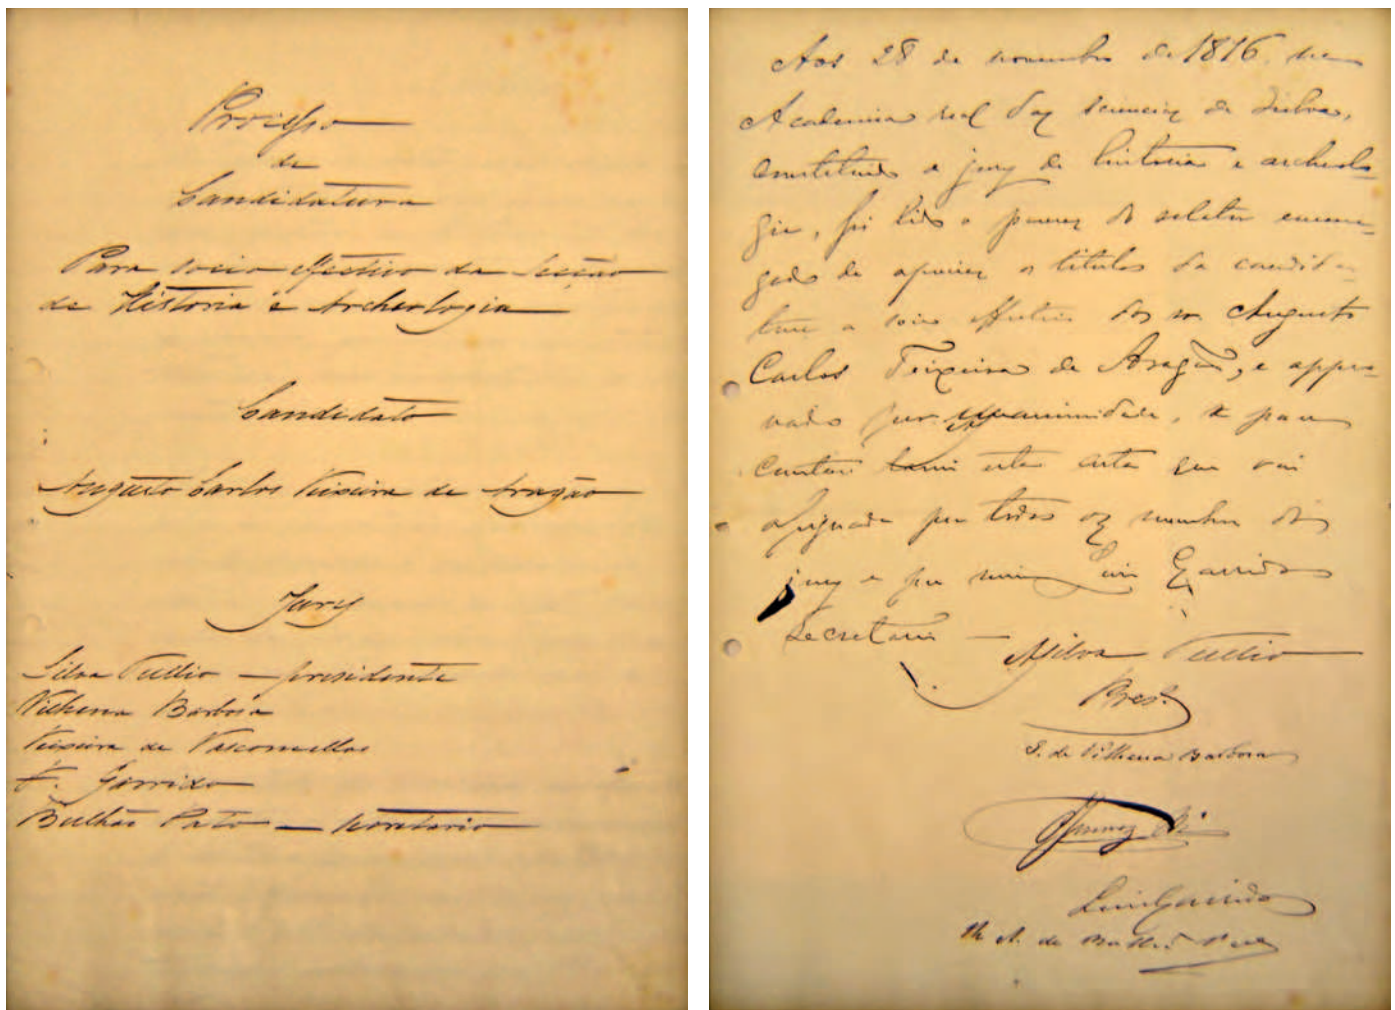 Processo
de
Candidatura
Para socio effectivo da Secção
de Historia e Archeologia
Candidato
Augusto Carlos Teixeira de Aragão
Jury
Silva Tullio — presidente
Vilhena Barbosa
Teixeira de Vasconcellos
Garrido
Bulhão Pato — secretario
Aos 28 de novembro de 1876, na
Academia real das sciencias de Lisboa,
constituido o jury de historia e archeolo-
gia, foi lido o parecer do relator encarre-
gado de apreciar os titulos da candida-
tura a socio effectivo do sr. Augusto
Carlos Teixeira de Aragão, e appro-
vado por unanimidade, e para
constar esta acta que vai
assignada por todos os membros do
jury e por mim Luiz Garrido
Secretario —
A Silva Tullio
Pres.
I. de Vilhena Barbosa
Luiz Garrido
R. A. de Bulhão Pato